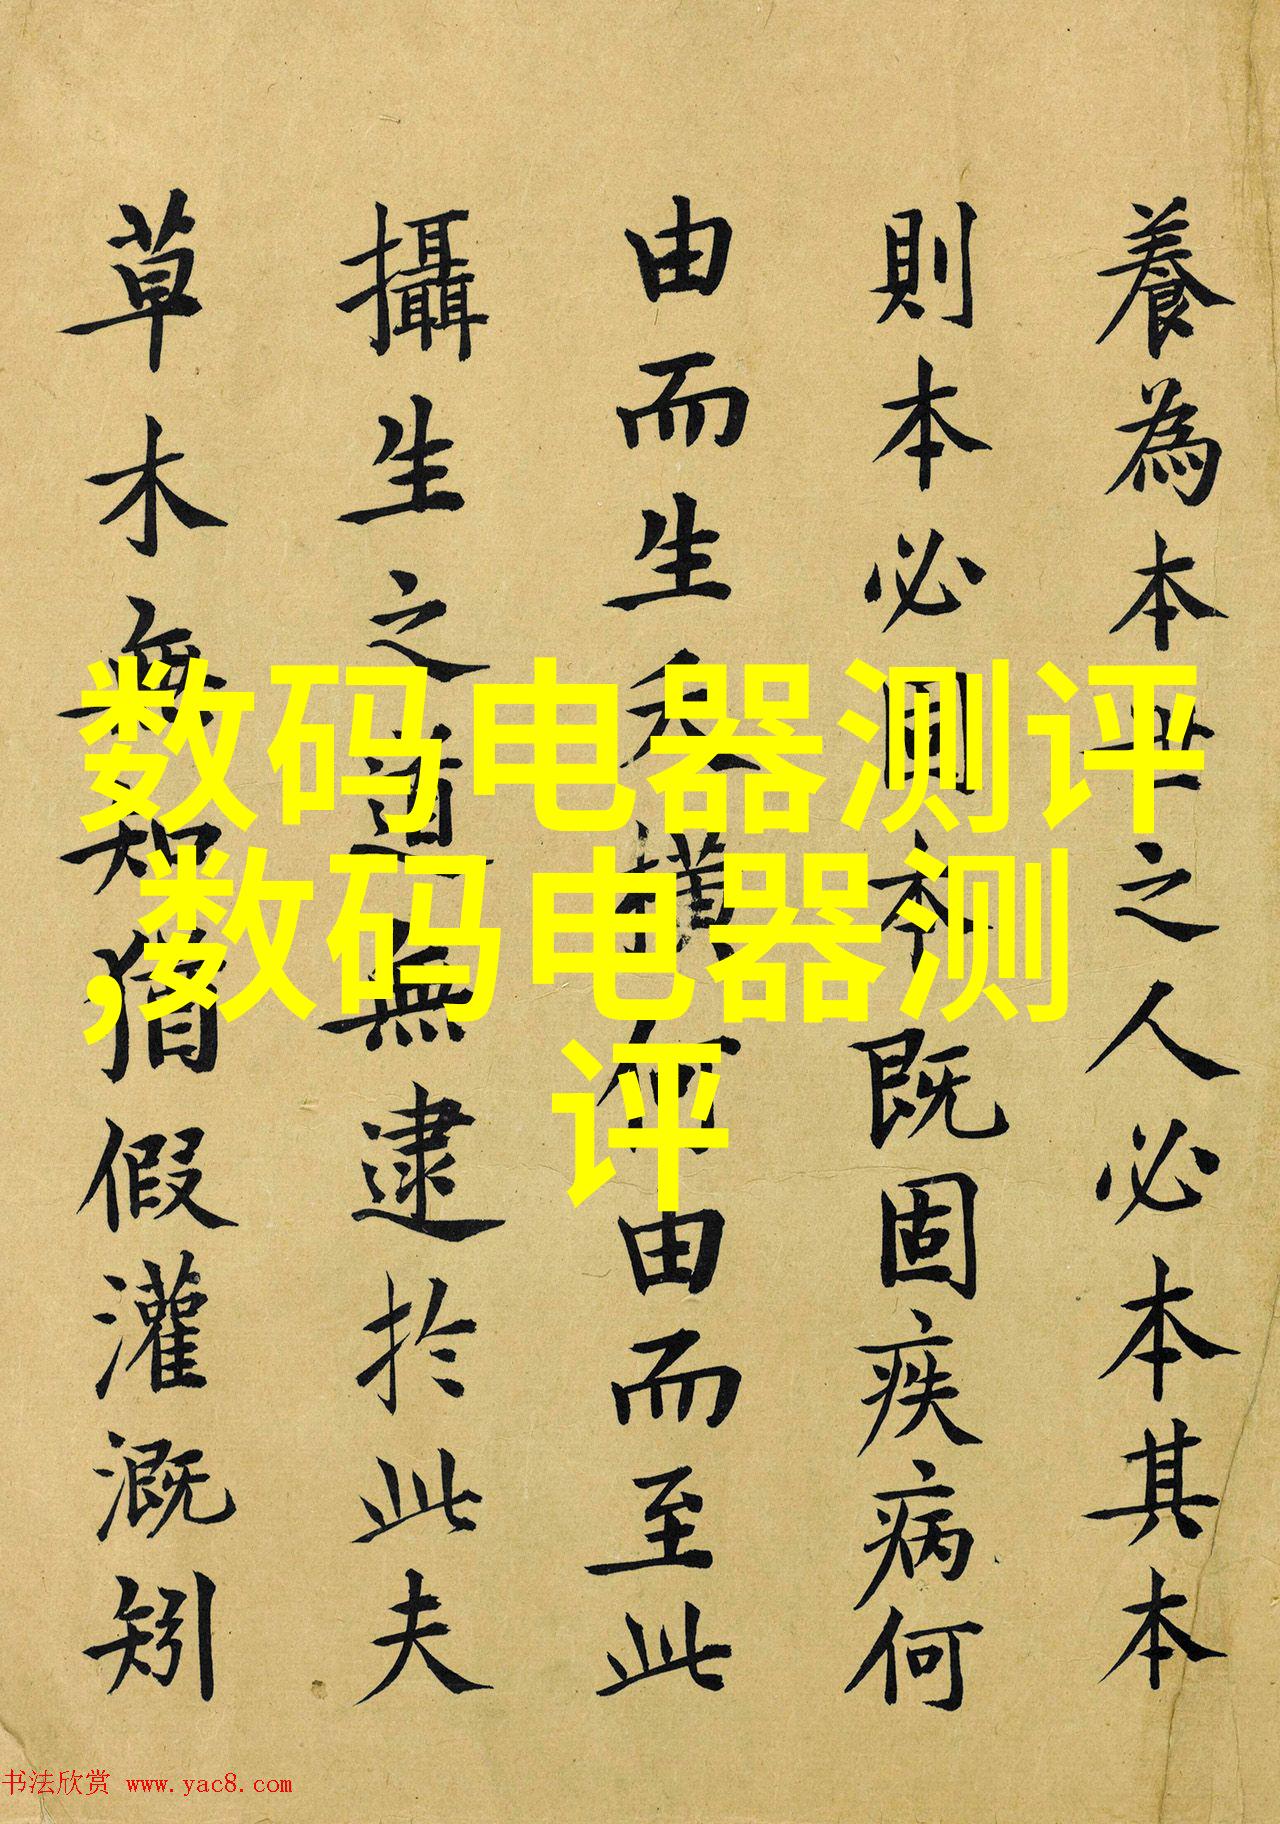 養為本世之人必本其本
則本必固本既固疾病何
由而生夭橫何由而至此
攝生之道無逮於此夫
草木無知猶假灌溉矧
数码电器测评
,数码电器测
评
书法欣赏 www.yac8.com